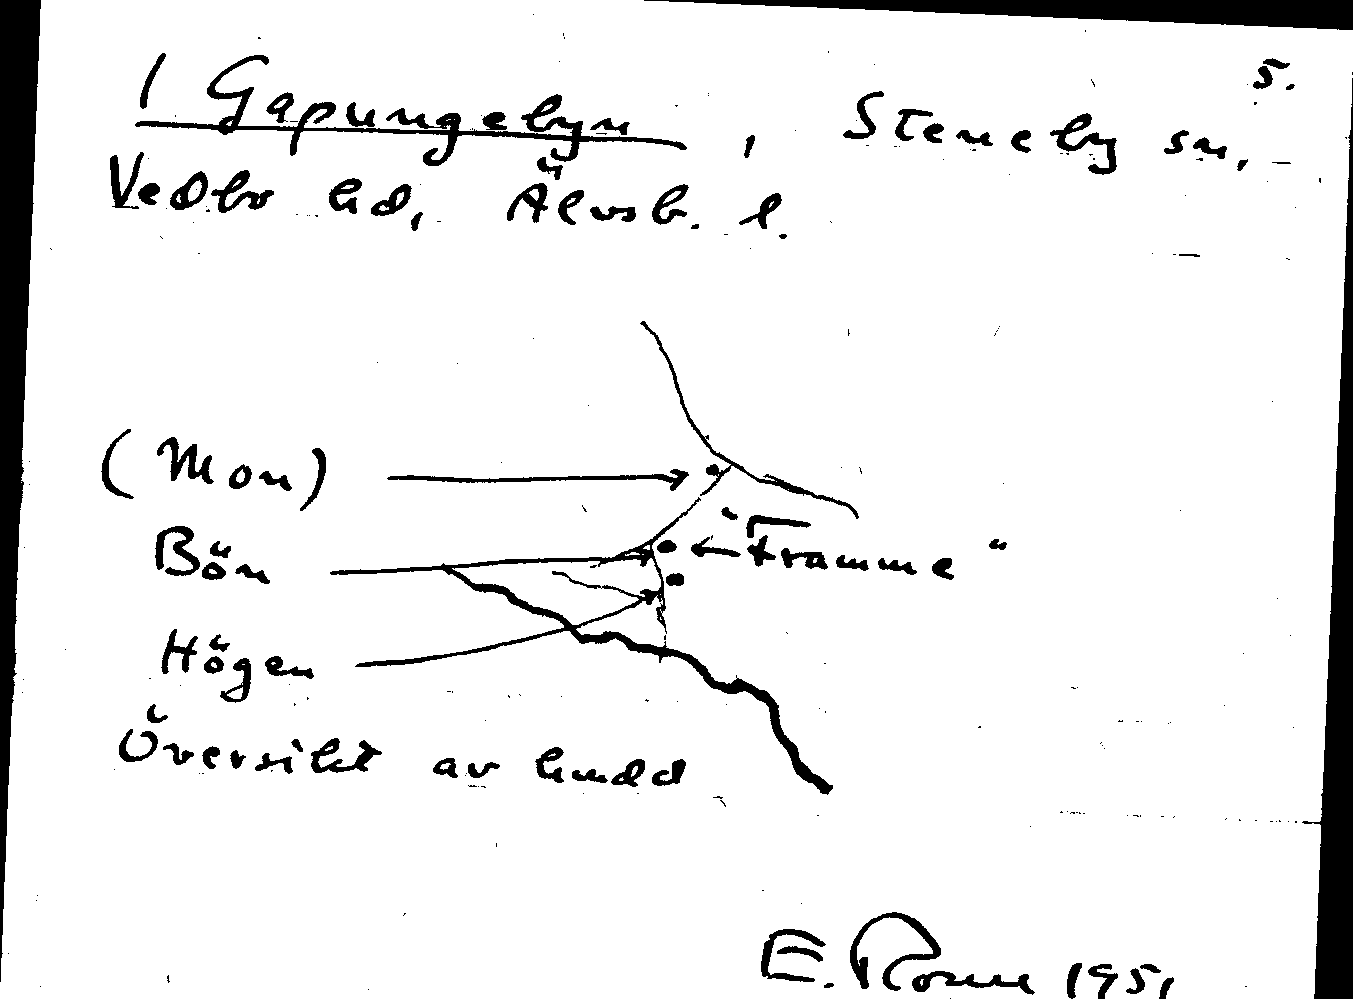 5.
1 Gapungebyn, Steneby sn,
Vedbo hd, Älvsb. l.
(Mon)
Bön
"Framme"
Högen
Översikt av
E. 1951